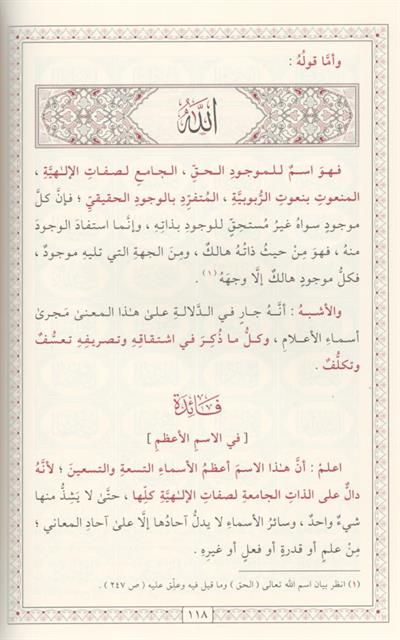 وأمَّا قولُهُ :
اللهُ
فهوَ اسمٌ للموجودِ الحقِّ ، الجامعِ لصفاتِ الإلـٰهيَّةِ ،
المنعوتِ بنعوتِ الرُّبوبيَّةِ ، المُتفرِّدِ بالوجودِ الحقيقيِّ ؛ فإنَّ كلَّ
موجودٍ سواهُ غيرُ مُستحِقٍّ للوجودِ بذاتِهِ ، وإنَّما استفادَ الوجودَ
منهُ ، فهوَ مِنْ حيثُ ذاتُهُ هالكٌ ، ومِنَ الجهةِ التي تليهِ موجودٌ ،
فكلُّ موجودٍ هالكٌ إلَّا وجهَهُ (١) .
والأشبهُ : أنَّهُ جارٍ في الدَّلالةِ علىٰ هـٰذا المعنىٰ مَجرىٰ
أسماءِ الأعلامِ ، وكلُّ ما ذُكِرَ في اشتقاقِهِ وتصريفِهِ تعسُّفٌ
وتكلُّفٌ .
فَائِدَة
[ في الاسمِ الأعظمِ ]
اعلمْ : أنَّ هـٰذا الاسمَ أعظمُ الأسماءِ التسعةِ والتسعينَ ؛ لأنَّهُ
دالٌّ على الذاتِ الجامعةِ لصفاتِ الإلـٰهيَّةِ كلِّها ، حتَّىٰ لا يَشِذُّ منها
شيءٌ واحدٌ ، وسائرُ الأسماءِ لا يدلُّ آحادُها إلَّا علىٰ آحادِ المعاني ؛
مِنْ علمٍ أو قدرةٍ أو فعلٍ أو غيرِهِ .
(١) انظر بيان اسم الله تعالى ( الحق ) وما قيل فيه وعلِّق عليه ( ص ٢٤٧ ) .
١١٨